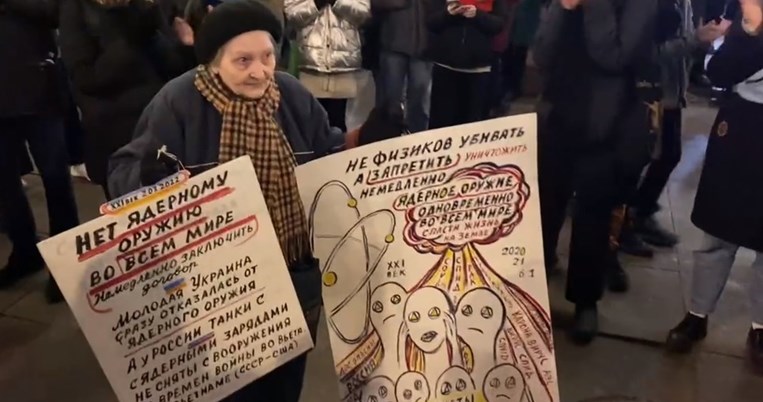 XXI ВЕК 2.03.2022
НЕТ ЯДЕРНОМУ
ОРУЖИЮ
ВО ВСЕМ МИРЕ
НЕМЕДЛЕННО ЗАКЛЮЧИТЬ
ДОГОВОР
МОЛОДАЯ УКРАИНА
СРАЗУ ОТКАЗАЛАСЬ ОТ
ЯДЕРНОГО ОРУЖИЯ
А У РОССИИ ТАНКИ С
ЯДЕРНЫМИ ЗАРЯДАМИ
НЕ СНЯТЫ С ВООРУЖЕНИЯ
ВРЕМЕН ВОЙНЫ ВО ВЬЕТ
(СССР-США)
НЕ ФИЗИКОВ УБИВАТЬ
А ЗАПРЕТИТЬ, УНИЧТОЖИТЬ
НЕМЕДЛЕННО
ЯДЕРНОЕ ОРУЖИЕ
ОДНОВРЕМЕННО
ВО ВСЕМ МИРЕ
СПАСТИ ЖИЗНЬ
НА ЗЕМЛЕ
XXI
ВЕК
2020
21
6.1